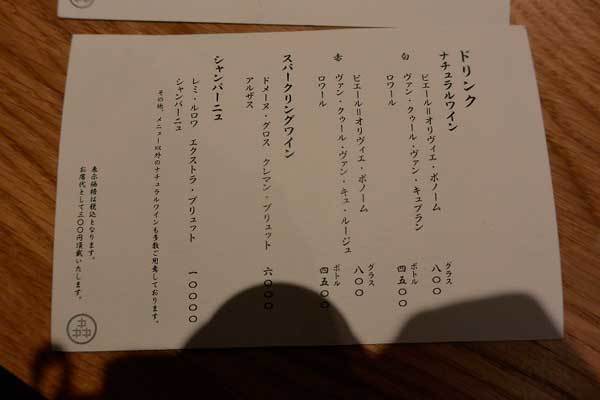 ドリンク
ナチュラルワイン
白
ピエール=オリヴィエ・ボノーム
グラス 八〇〇
ヴァン・クゥール・ヴァン・キュ ブラン
ボトル 四五〇〇
ロワール
赤
ピエール=オリヴィエ・ボノーム
グラス 八〇〇
ヴァン・クゥール・ヴァン・キュ・ルージュ
ボトル 四五〇〇
ロワール
スパークリングワイン
ドメーヌ・グロス クレマン・ブリュット
六〇〇〇
アルザス
シャンパーニュ
レミ・ルロワ エクストラ・ブリュット
一〇〇〇〇
シャンパーニュ
その他、メニュー以外のナチュラルワインも多数ご用意しております。
表示価格は税込となります。
お席代として三〇〇円頂戴いたします。